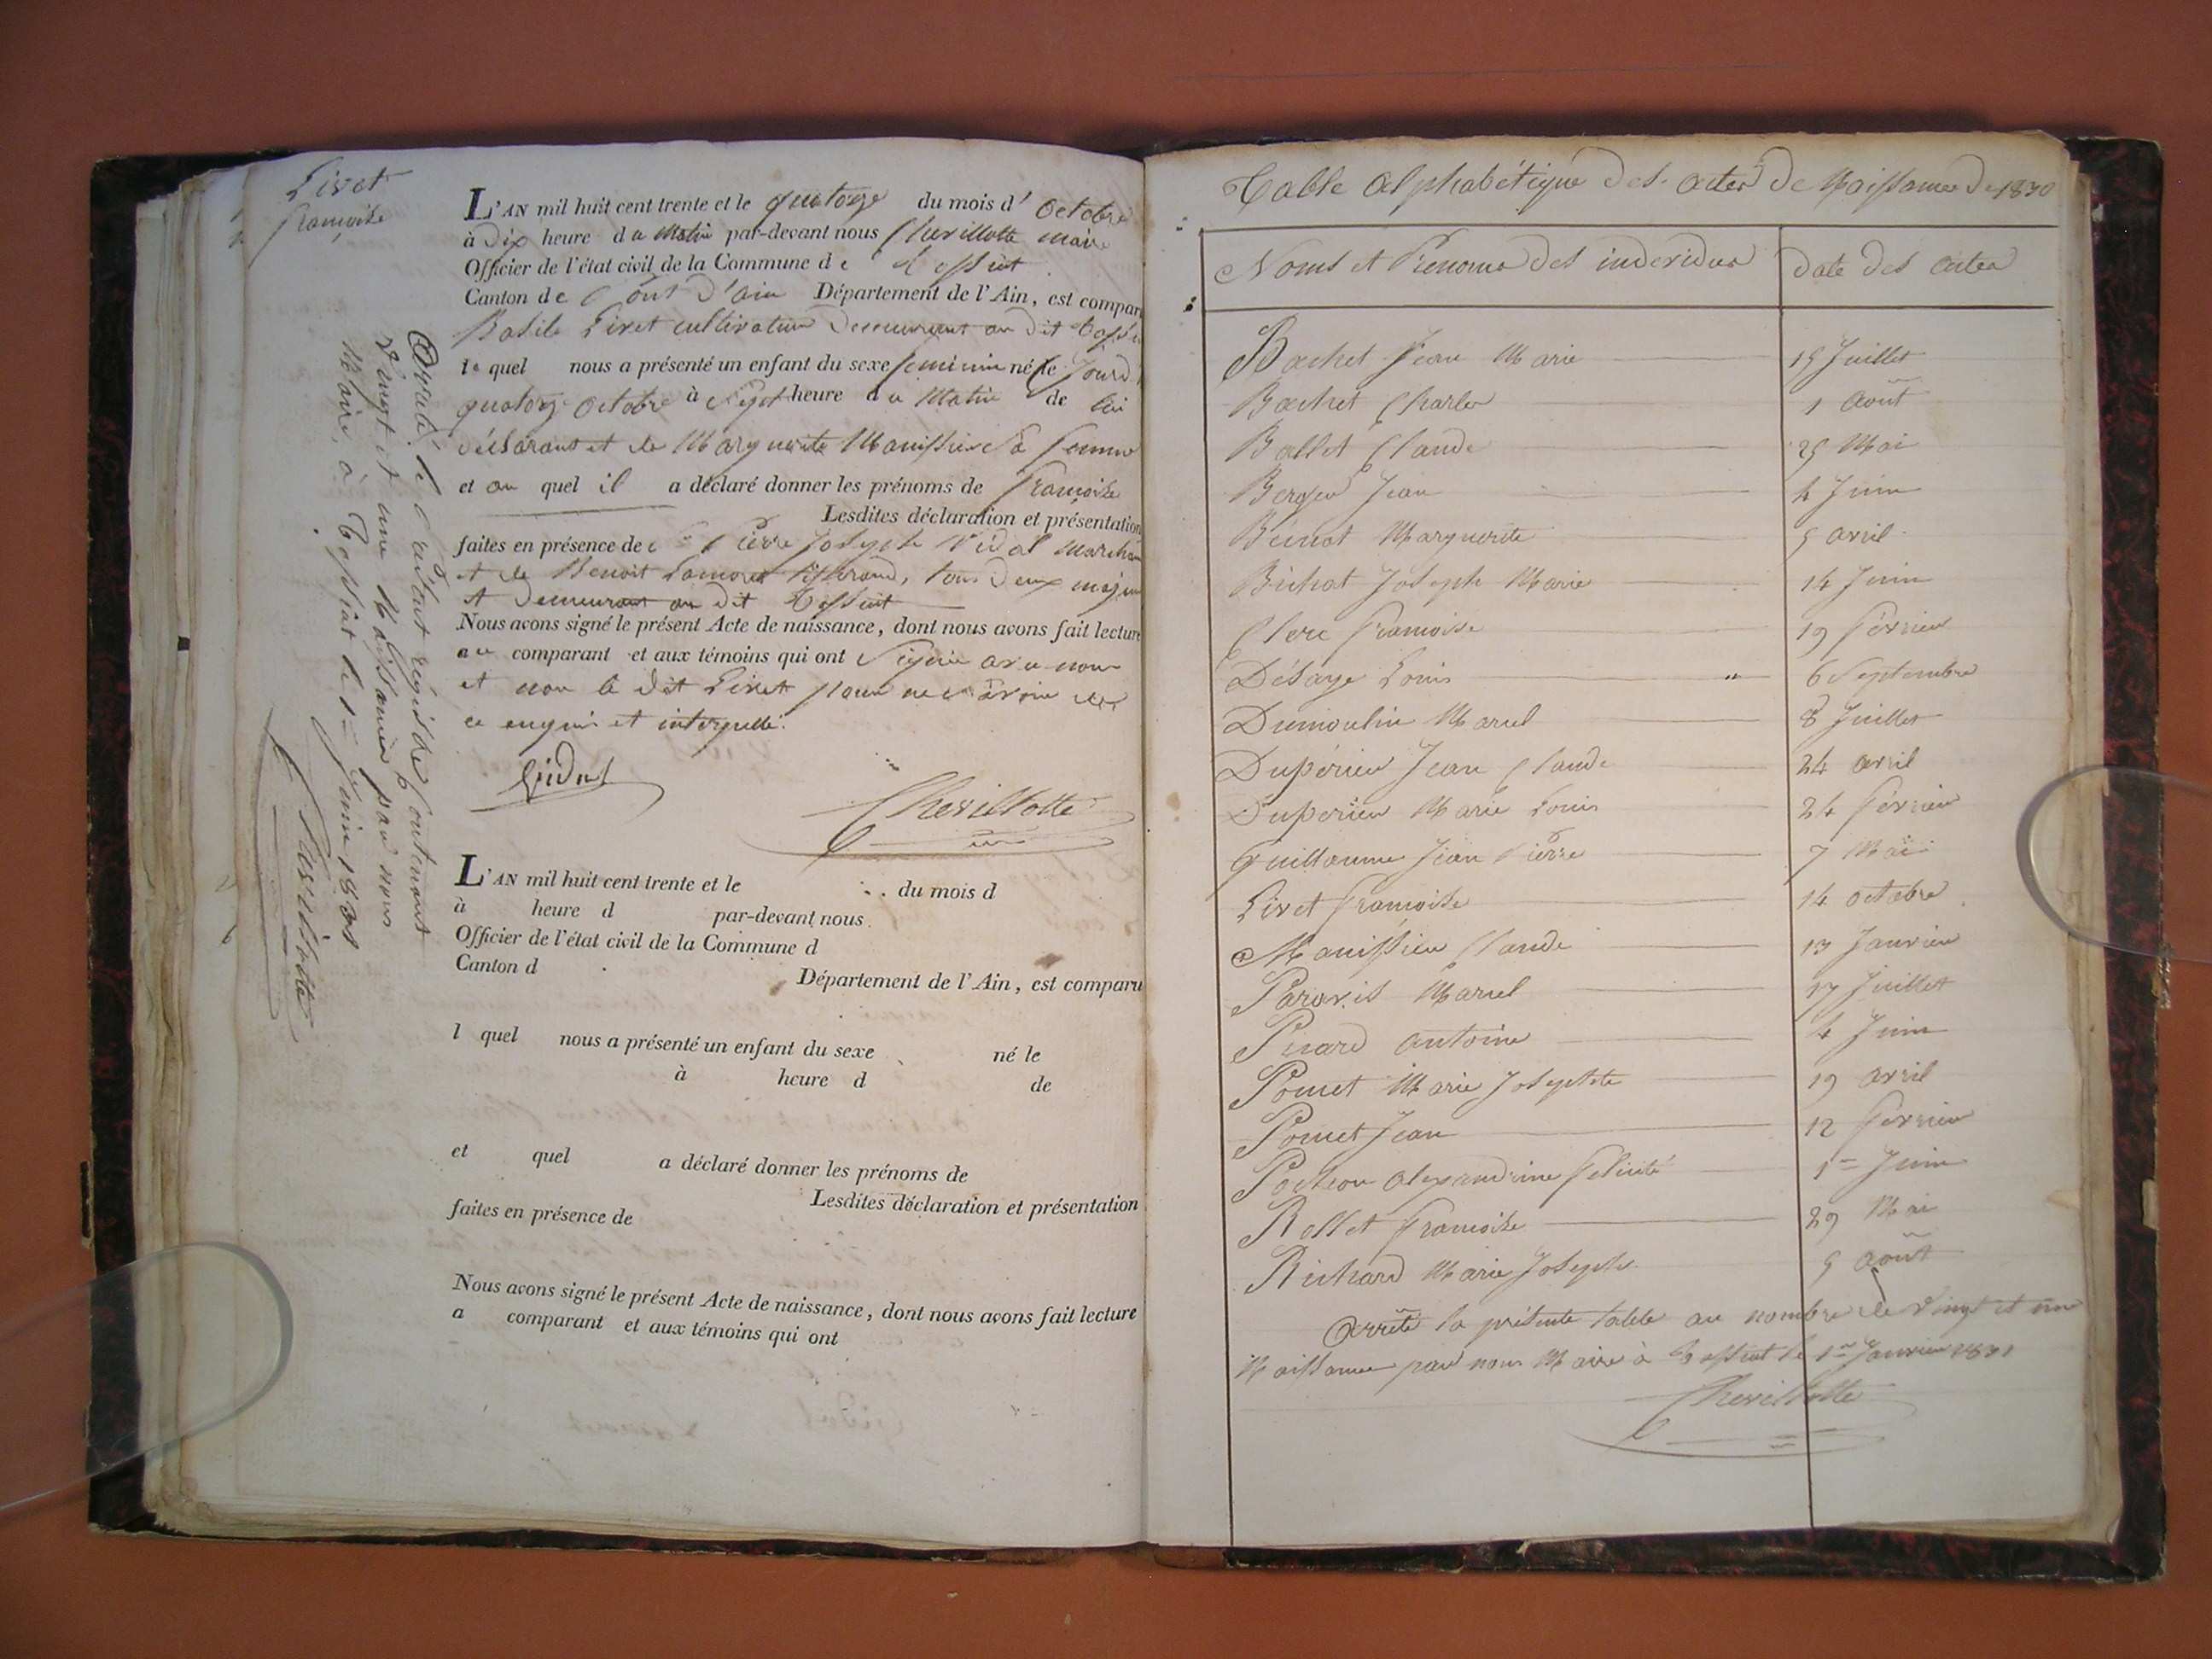 Livet
françoise
L'AN mil huit cent trente et le quatorze du mois d' octobre
à Dix heure du Matin par-devant nous Chevillotte maire
Officier de l'état civil de la Commune de
Canton de Pont d'ain Département de l'Ain, est compar
Basile Livet cultivateur Demeurant au dit
le quel nous a présenté un enfant du sexe feminin né le Jourd
quatorze octobre à Sept heure du Matin de lui
déclarant et de Marguerite Manissier Sa femme
et au quel il a déclaré donner les prénoms de françoise
Lesdites déclaration et présentation
faites en présence de Pierre Joseph Vidal march
et de Benoit Lamoret tisserand, tous Deux majeur
et Demeurant au dit
Nous avons signé le présent Acte de naissance, dont nous avons fait lecture
au comparant et aux témoins qui ont Signé avec nous
et non le dit Livet pour ne savoir de
ce enquis et interpellé.
Vidal
Chevillotte
L'AN mil huit cent trente et le du mois d
à heure d par-devant nous
Officier de l'état civil de la Commune d
Canton d Département de l'Ain, est comparu
l quel nous a présenté un enfant du sexe né le
à heure d de
et quel a déclaré donner les prénoms de
Lesdites déclaration et présentation
faites en présence de
Nous avons signé le présent Acte de naissance, dont nous avons fait lecture
a comparant et aux témoins qui ont
le présent régistre Contenant
Vingt et une Naissances par nous
Maire à le 1er
Chevillotte
Table Alphabétique des actes de Naissances de 1830
Noms et Prenoms des individus Date des actes
Bachet Jean Marie 15 Juillet
Bachet Charles 1 Août
Ballet Claude 25 Mai
Berger Jean 4 Juin
Marguerite 5 avril
Bichat Joseph Marie 14 Juin
Clerc françoise 19 février
Désaye Louis 6 Septembre
Dumoulin Marcel 8 Juillet
Dupérier Jean Claude 24 avril
Dupérier Marie Louis 24 février
Guillaume Jean Pierre 7 Mai
Livet françoise 14 octobre
Manissier Claude 13 Janvier
Paravis Marcel 17 Juillet
Antoine 4 Juin
Pomet Marie Josephte 19 avril
Pomet Jean 12 fevrier
Pochon Alexandrine félicité 1er Juin
Rollet françoise 29 Mai
Richard Marie Josephe 5 août
Arrêté la présente table au nombre de Vingt et une
Naissances par nous Maire à le 1er Janvier 1831
Chevillotte